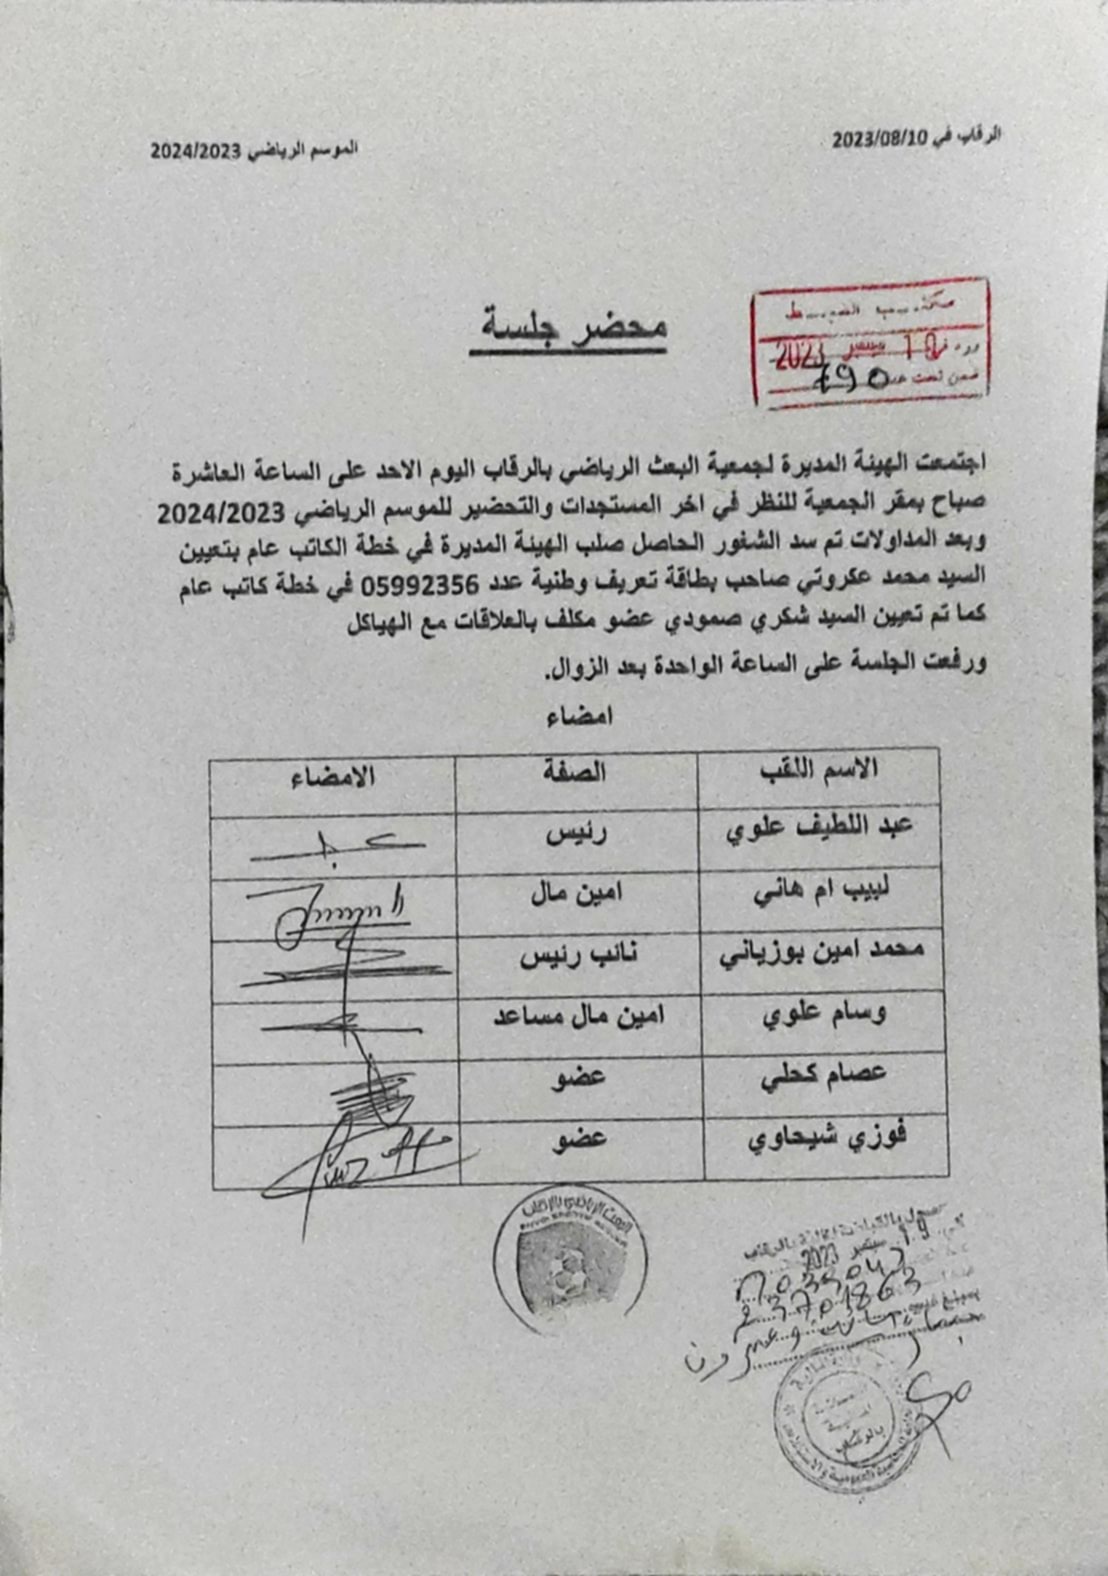 الرقاب في 2023/08/10
الموسم الرياضي 2024/2023
محضر جلسة
مكتب الضبط
ورد في 19 سبتمبر 2023
ضمن تحت عدد 790
اجتمعت الهيئة المديرة لجمعية البعث الرياضي بالرقاب اليوم الاحد على الساعة العاشرة
صباح بمقر الجمعية للنظر في اخر المستجدات والتحضير للموسم الرياضي 2024/2023
وبعد المداولات تم سد الشغور الحاصل صلب الهيئة المديرة في خطة الكاتب عام بتعيين
السيد محمد عكروتي صاحب بطاقة تعريف وطنية عدد 05992356 في خطة كاتب عام
كما تم تعيين السيد شكري صمودي عضو مكلف بالعلاقات مع الهياكل
ورفعت الجلسة على الساعة الواحدة بعد الزوال.
امضاء
الاسم اللقب الصفة الامضاء
عبد اللطيف علوي رئيس
لبيب ام هاني امين مال
محمد امين بوزياني نائب رئيس
وسام علوي امين مال مساعد
عصام كحلي عضو
فوزي شيحاوي عضو
البعث الرياضي بالرقاب
بالقباضة المالية بالرقاب
19 سبتمبر 2023
بالرقاب